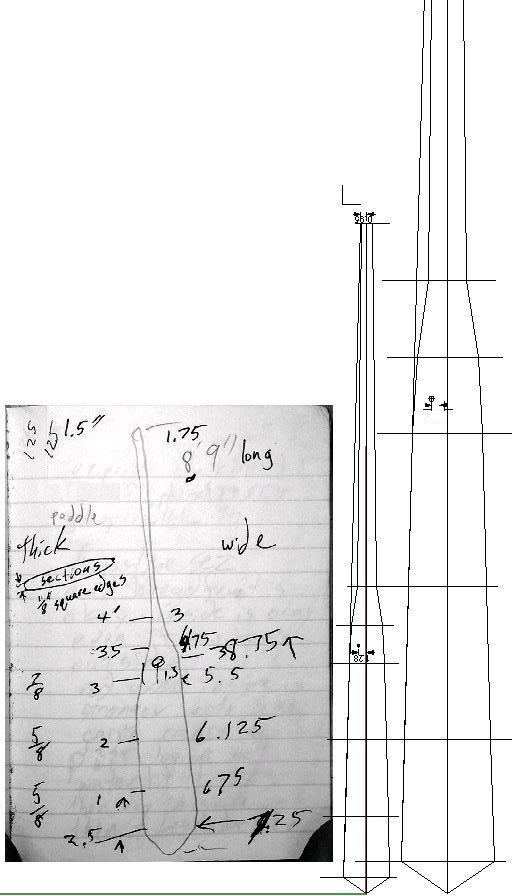 1.5"
1.75
8' 9" long
paddle
thick
wide
sections
1/8" square edges
4' 3
3.5 4.75 38.75 ↑
7/8 3 1.5 5.5
5/8 2 6.125
5/8 1 ↑ 675
2.5 ↑ 7.25
1.28